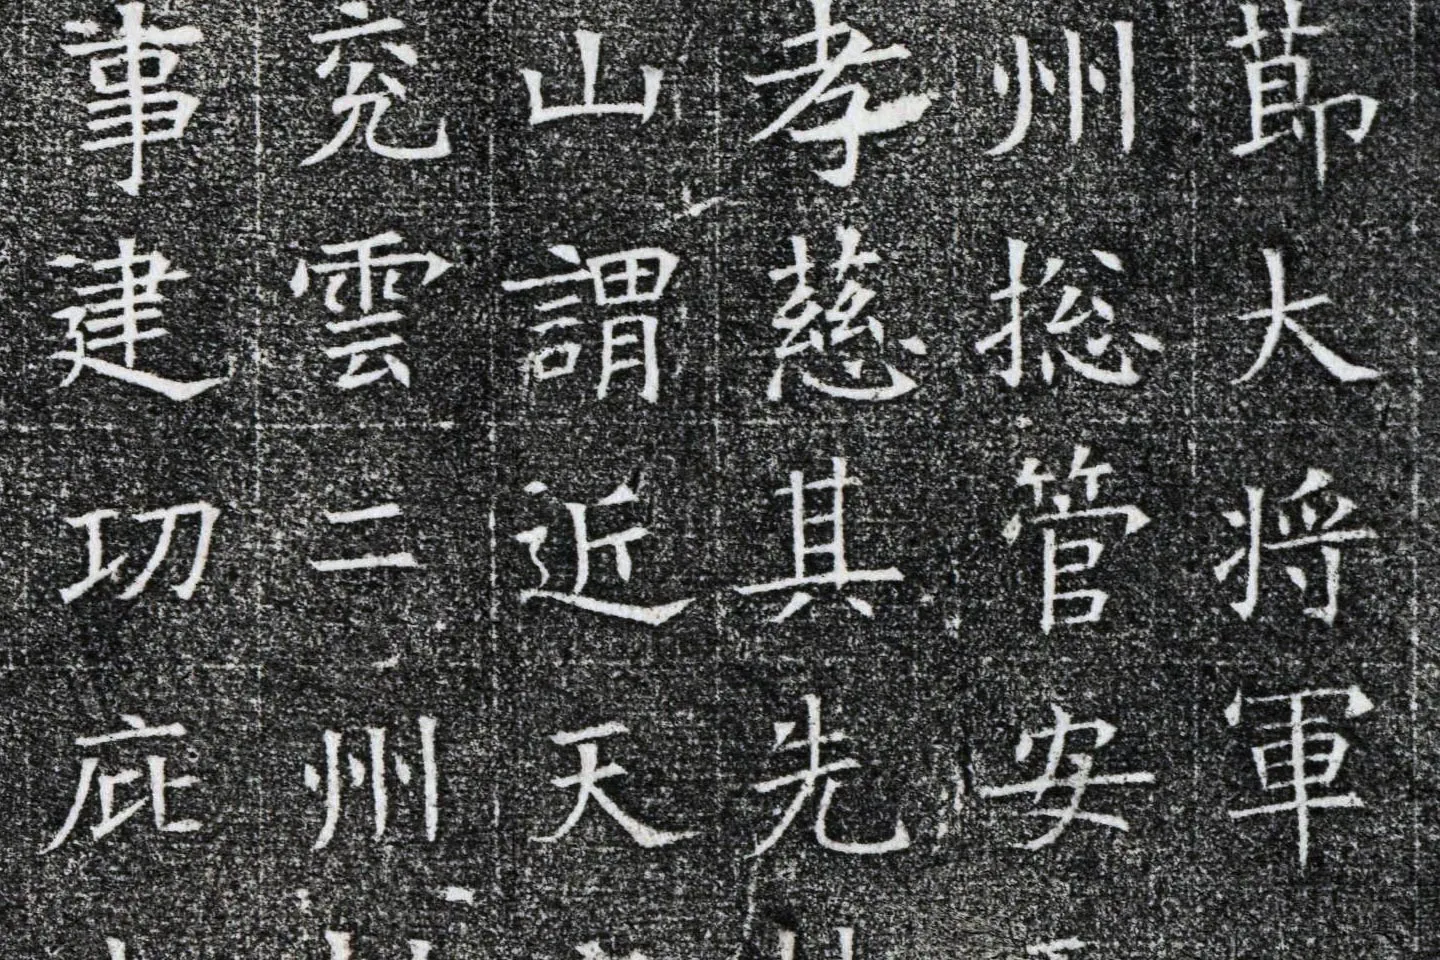 節大将軍
州揔管安
孝慈其先
山謂近天
兖雲二州
事建功庇